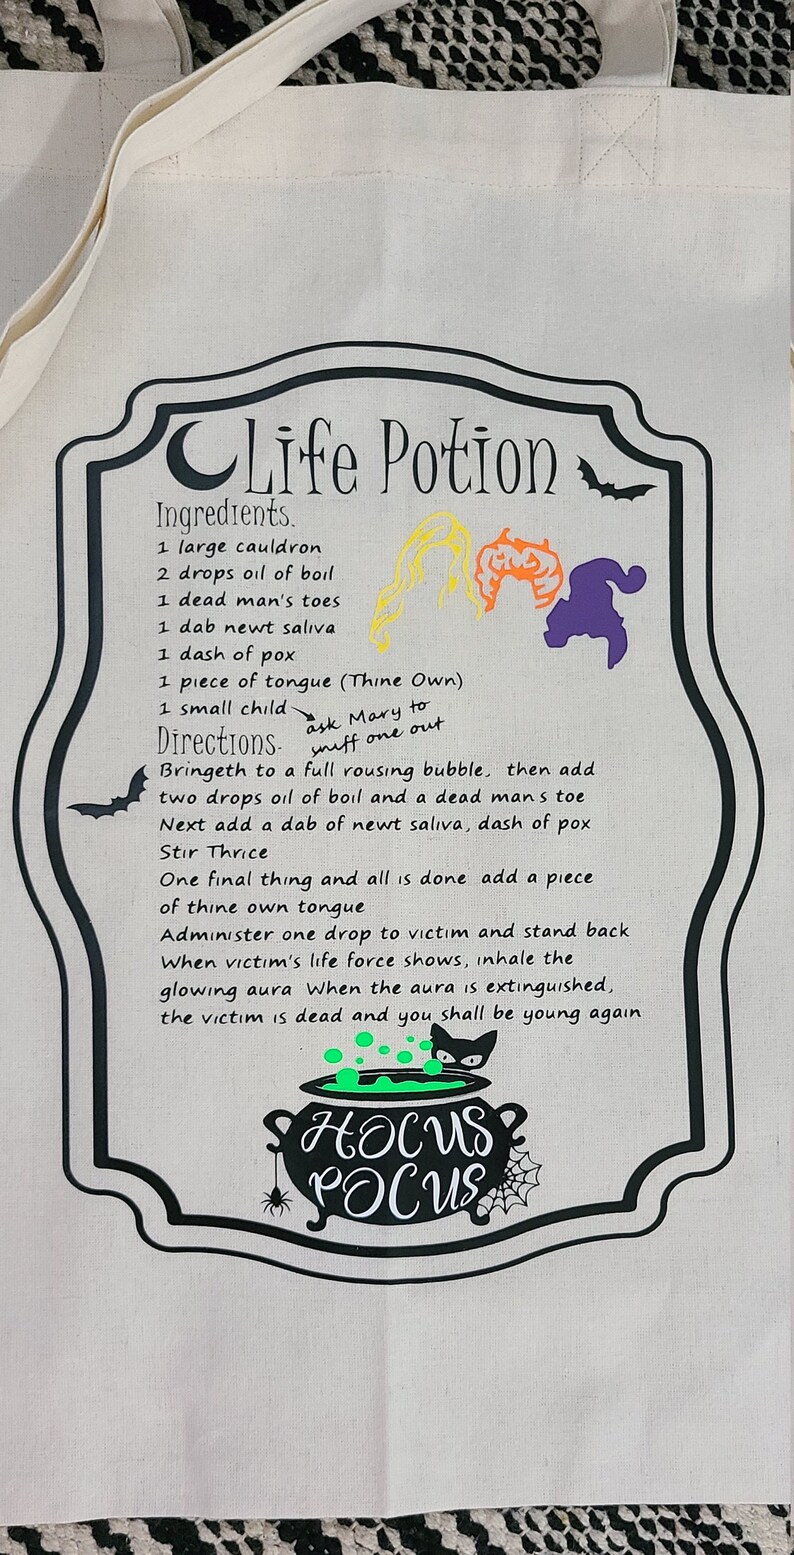 Life Potion
Ingredients.
1 large cauldron
2 drops oil of boil
1 dead man's toes
1 dab newt saliva
1 dash of pox
1 piece of tongue (Thine Own)
1 small child
ask Mary to
snuff one out
Directions-
Bringeth to a full rousing bubble, then add
two drops oil of boil and a dead man s toe
Next add a dab of newt saliva, dash of pox
Stir Thrice
One final thing and all is done add a piece
of thine own tongue
Administer one drop to victim and stand back
When victim's life force shows, inhale the
glowing aura When the aura is extinguished,
the victim is dead and you shall be young again
HOCUS
POCUS